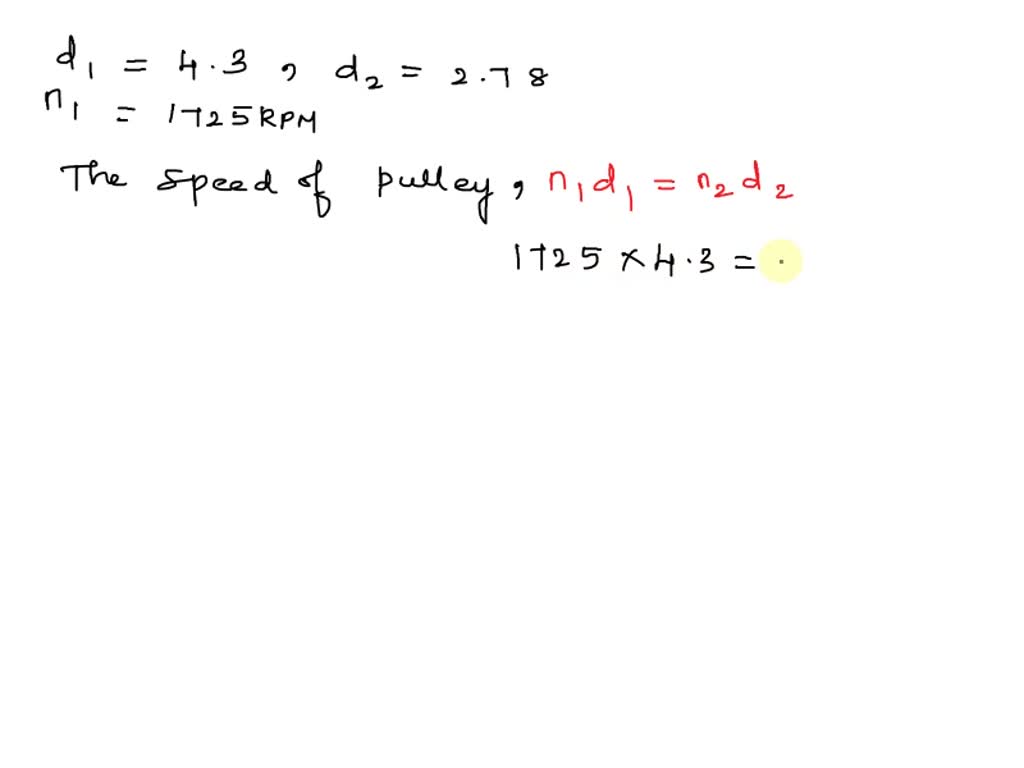 d₁ = 4.3 , d₂ = 2.78
n₁ = 1725 RPM
The speed of pulley, n₁d₁ = n₂d₂
1725 × 4.3 =